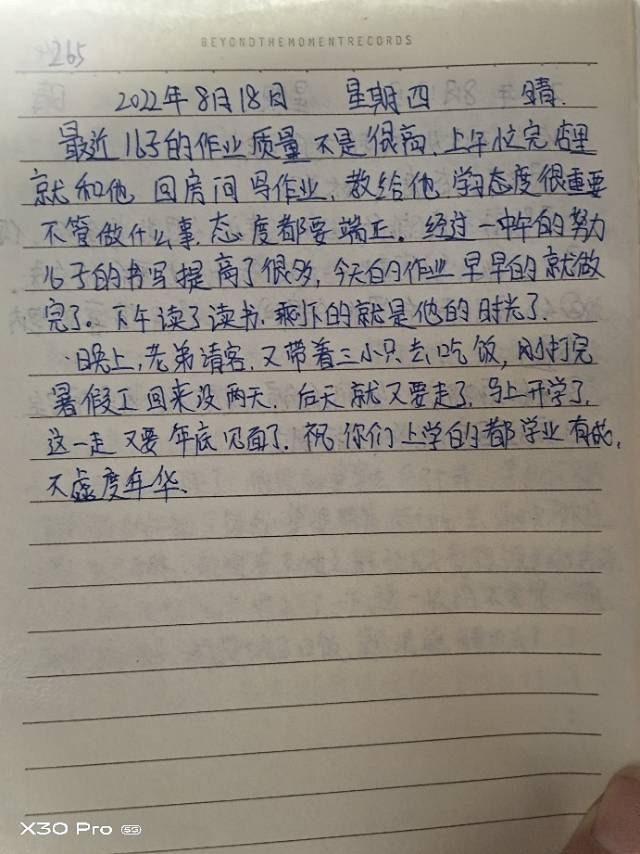 BEYONDTHEMOMENTRECORDS
265
2022年8月18日 星期四 晴.
最近儿子的作业质量不是很高,上午忙完店里
就和他回房间写作业,教给他学习态度很重要
不管做什么事,态度都要端正。经过一中午的努力
儿子的书写提高了很多,今天的作业早早的就做
完了。下午读了读书,剩下的就是他的时光了.
晚上,老弟请客,又带着三小只去吃饭,刚打完
暑假工回来没两天,后天就又要走了,马上开学了,
这一走又要年底见面了.祝你们上学的都学业有成,
不虚度年华.
X30 Pro 5G